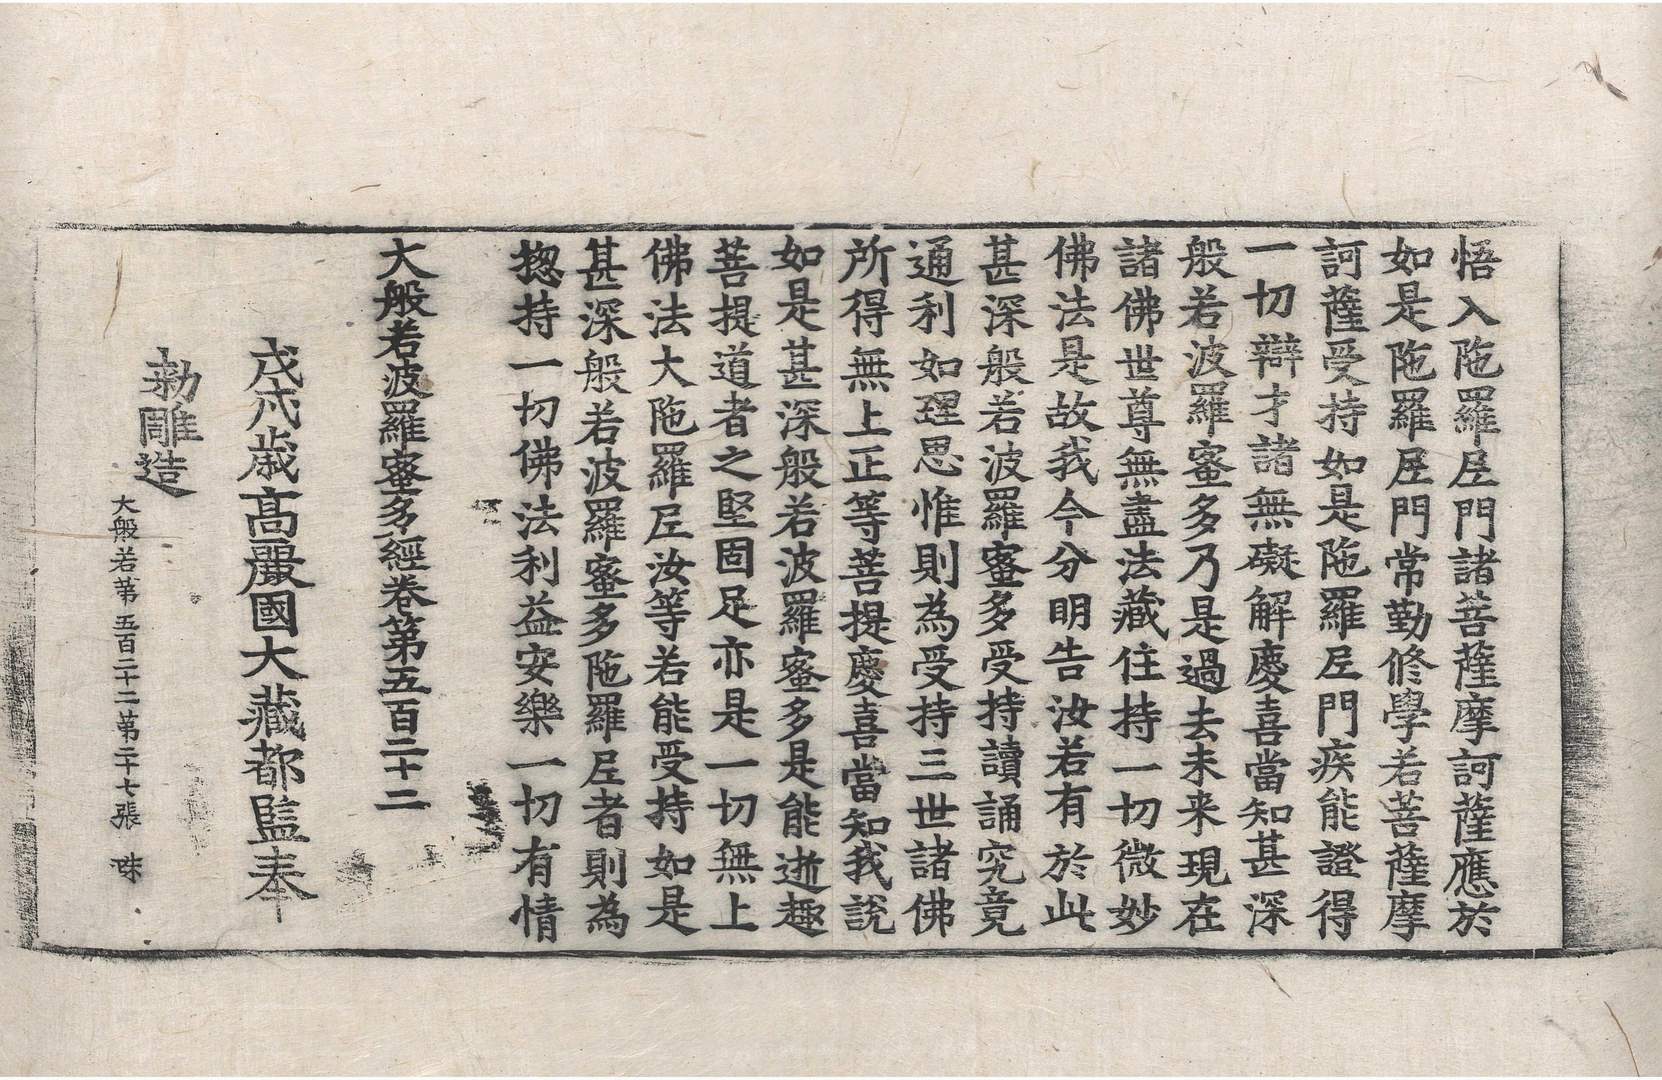 悟入陁羅𡰱門諸菩薩摩訶薩應於
如是陁羅𡰱門常勤修學若菩薩摩
訶薩受持如是陁羅𡰱門疾能證得
一切辯才諸無礙解慶喜當知甚深
般若波羅蜜多乃是過去未来現在
諸佛世尊無盡法藏住持一切微妙
佛法是故我今分明告汝若有於此
甚深般若波羅蜜多受持讀誦究竟
通利如理思惟則為受持三世諸佛
所得無上正等菩提慶喜當知我說
如是甚深般若波羅蜜多是能逝趣
菩提道者之堅固足亦是一切無上
佛法大陁羅𡰱汝等若能受持如是
甚深般若波羅蜜多陁羅𡰱者則為
揔持一切佛法利益安樂一切有情
大般若波羅蜜多經卷第五百二十二
戊戌歲高麗國大藏都監奉
勑雕造
大般若第五百二十二第二十七張